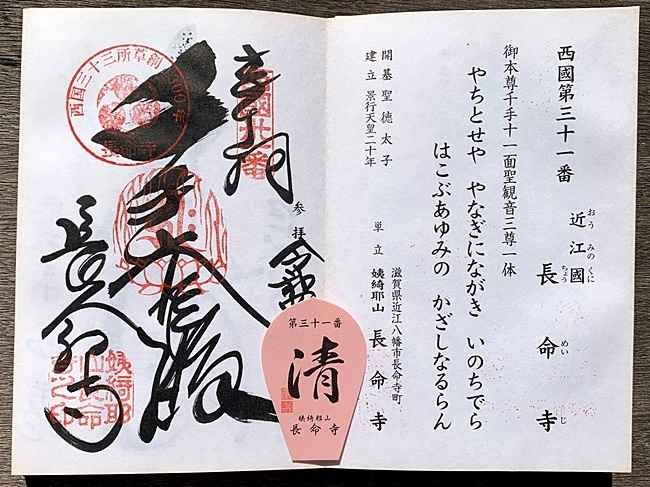 西國第三十一番
近江國 長命寺
おうみのくに ちょうめいじ
御本尊千手十一面聖観音三尊一体
やちとせや やなぎにながき いのちでら
はこぶあゆみの かざしなるらん
開基 聖徳太子
建立 景行天皇二十年
滋賀県近江八幡市長命寺町
単立 姨綺耶山 長命寺
奉拝
参拝
西國三十一番
西国三十三所草創1300年
長命寺
姨綺耶山長命寺之印
第三十一番
清
姨綺耶山
長命寺